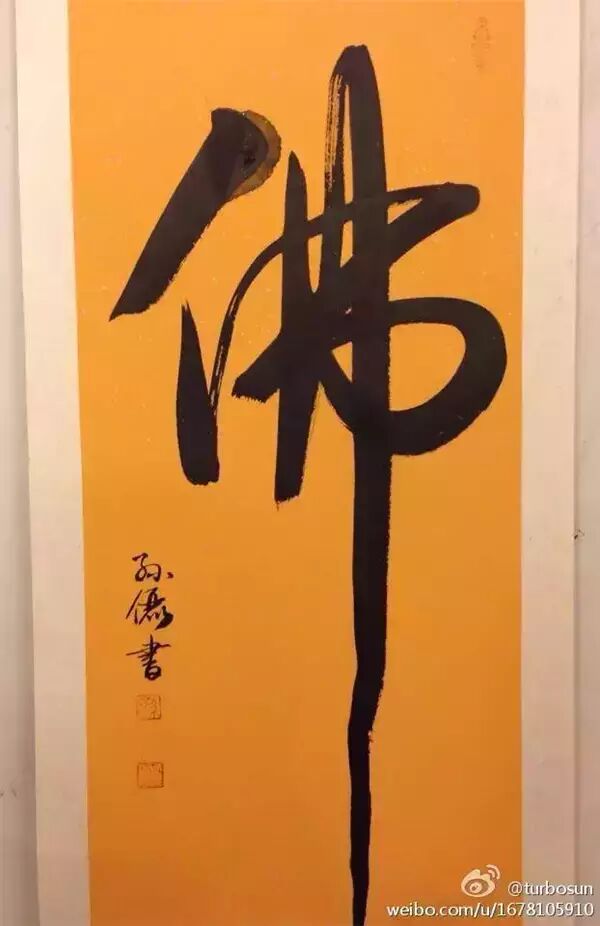 佛
孙儡书
@turbosun
weibo.com/u/1678105910